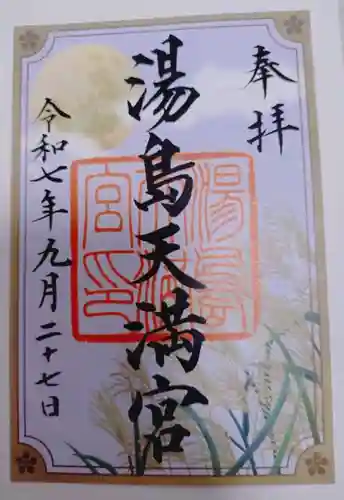 奉拝
湯島天満宮
令和七年九月二十七日